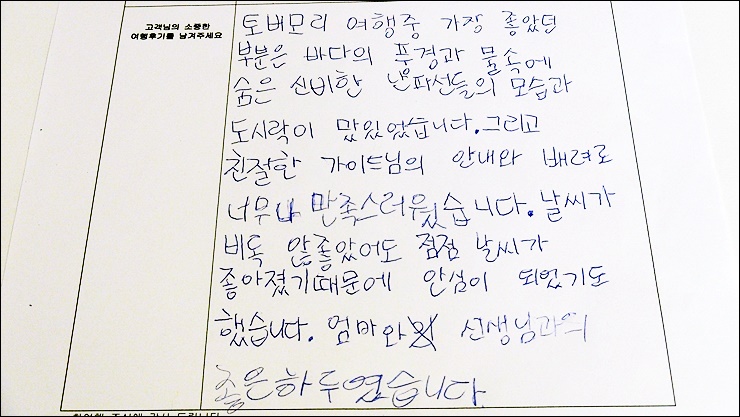 고객님의 소중한
여행후기를 남겨주세요
토버모리 여행중 가장 좋았던
부분은 바다의 풍경과 물속에
숨은 신비한 난파선들의 모습과
도시락이 맜있었습니다. 그리고
친절한 가이드님의 안내와 배려로
너무나 만족스러웠습니다. 날씨가
비록 않좋았어도 점점 날씨가
좋아졌기때문에 안심이 되었기도
했습니다. 엄마와 선생님과의
좋은하루였습니다